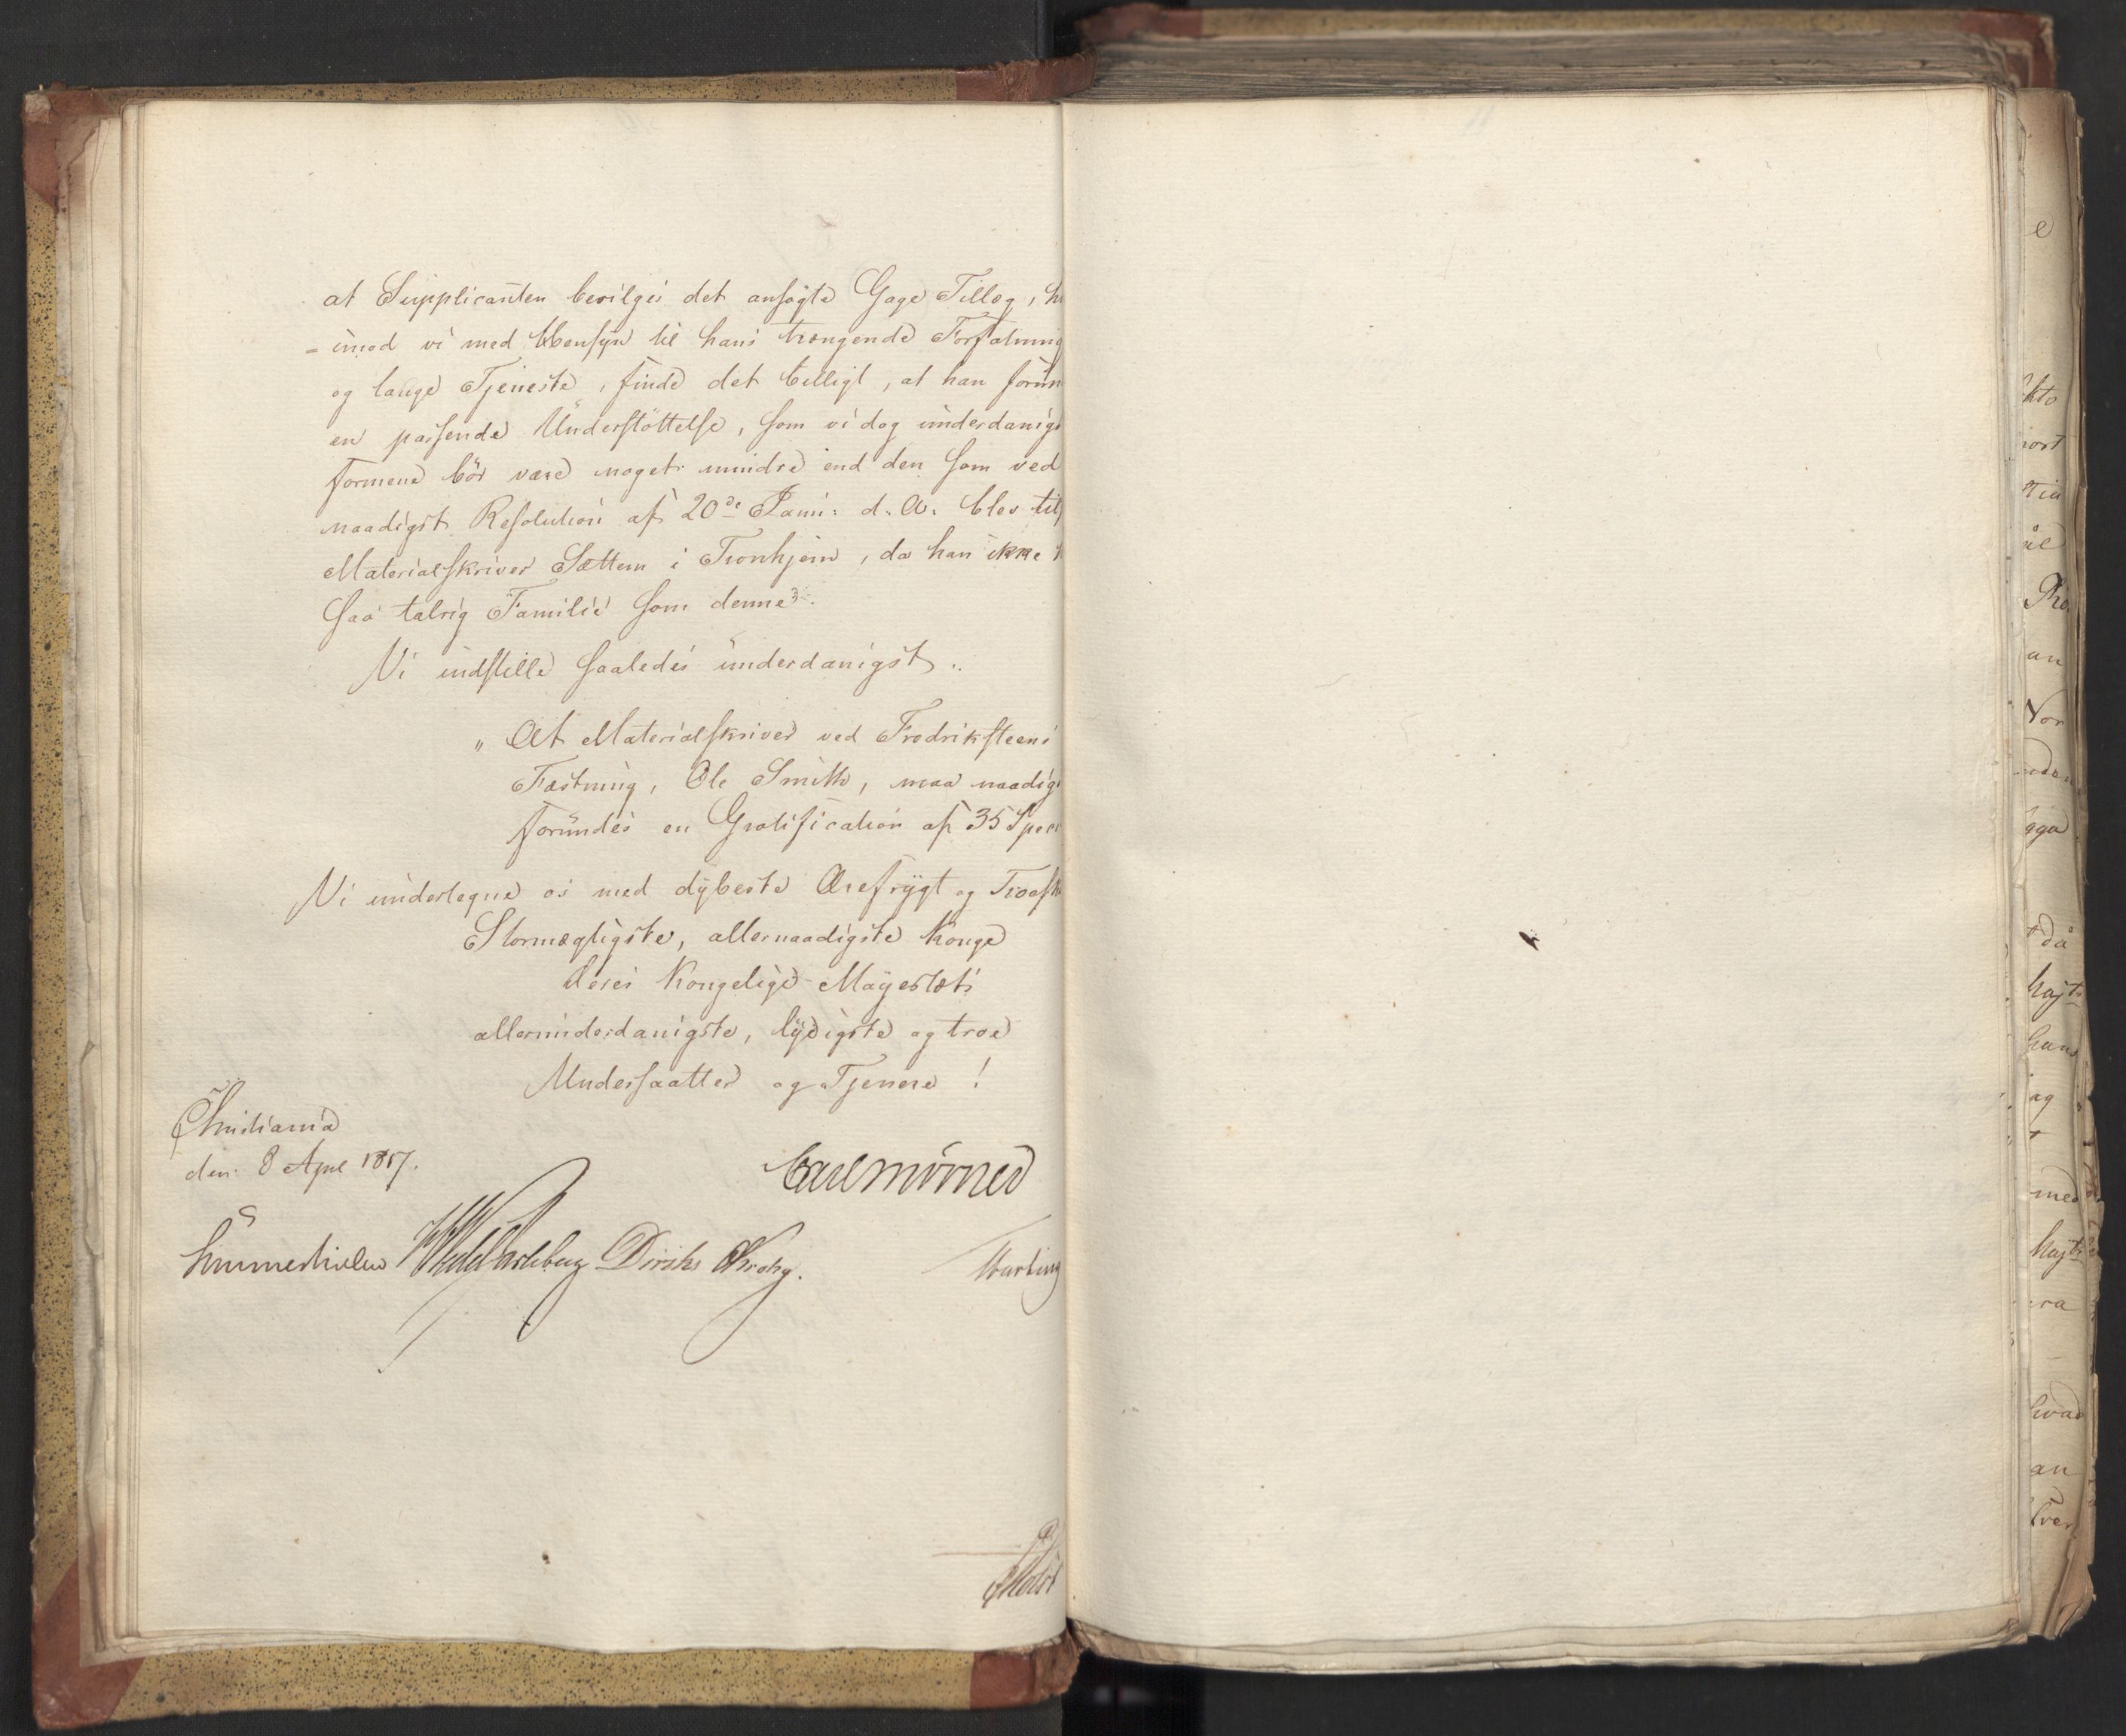 at Supplicanten bevilges det ansøgte Gage Tillæg, h
= imod vi med Hensyn til hans trængende Forfatning
og lange Tjeneste, finde det billigt, at han forun
en passende Understöttelse, som vi dog underdanigs
formene bör være noget mindre end den som ved
naadigst Resolution af 20de Janu: d. A. blev til
Materialskriver Sættem i Tronhjem, da han ikke h
saa talrig Familie som denne.
Vi indstille saaledes underdanigst:
„ At Materialskriver ved Fredriksteens
Fæstning, Ole Smith, maa naadigs
forundes en Gratification af 35 Speci
Vi undertegne os med dybeste Ærefrygt og Troesk
Stormægtigste, allernaadigste Konge
Deres Kongelige Majestæts
allerunderdanigste, lydigste og troe
Undersaatter og Tjenere!
Christiania
den 8 April 1817.
Carl Mörner
Sommerhielm WedelJarlsberg Diriks Krohg.
Holst
e
an
Vor
då
Majts
hans
ag
med
Majts
hvad
an